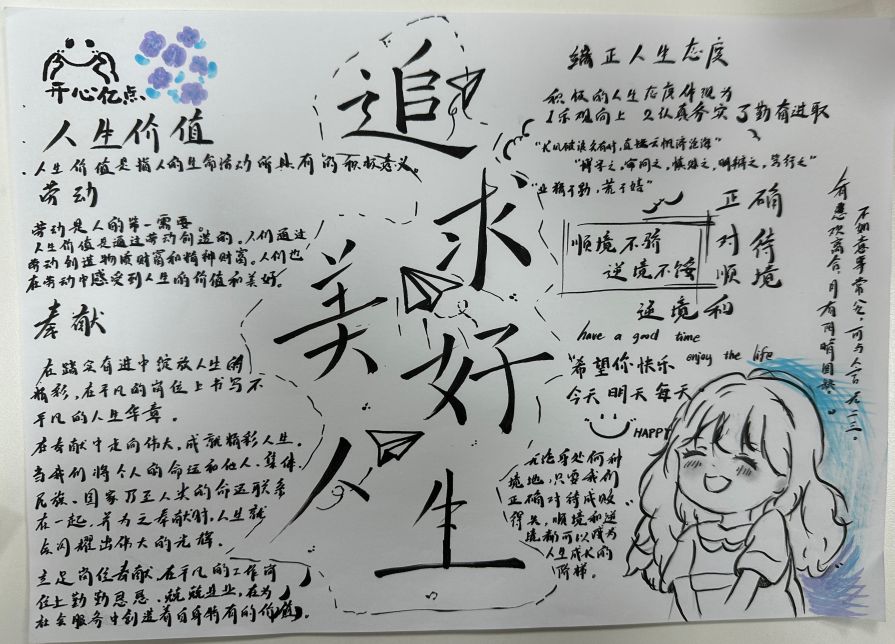 开心亿点
人生价值
人生价值是指人的生命活动所具有的积极意义。
劳动
劳动是人的第一需要。
人生价值是通过劳动创造的,人们通过
劳动创造物质财富和精神财富。人们也
在劳动中感受到人生的价值和美好。
奉献
在踏实奋进中绽放人生的
精彩,在平凡的岗位上书写不
平凡的人生华章。
在奉献中走向伟大,成就精彩人生。
当我们将个人的命运和他人、集体、
民族、国家乃至人类的命运联系
在一起,并为之奉献时,人生就
会闪耀出伟大的光辉。
立足岗位奉献,在平凡的工作岗
位上勤勤恳恳、兢兢业业,在为
社会服务中创造着自身特有的价值。
追
求
美
好
人
生
端正人生态度
积极的人生态度体现为
1乐观向上 2认真务实 3勤奋进取
“长风破浪会有时,直挂云帆济沧海”
“博学之,审问之,慎思之,明辨之,笃行之”
“业精于勤,荒于嬉”
正确
对待
顺境
逆境和
顺境不骄
逆境不馁
不如意事常八九,可与人言无二三。
人有悲欢离合,月有阴晴圆缺。”
have a good time
“希望你快乐 enjoy the life
今天 明天 每天”
HAPPY
无论身处何种
境地,只要我们
正确对待成败
得失,顺境和逆
境都可以成为
人生成长的
阶梯。